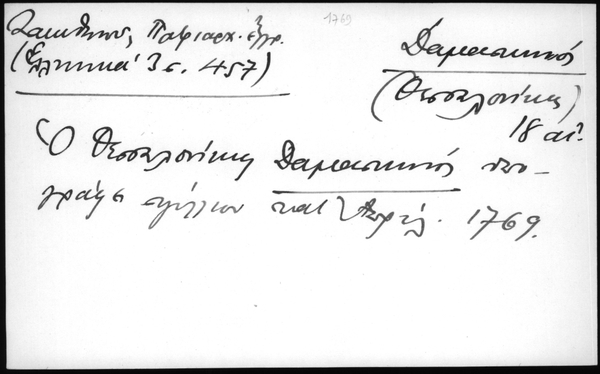 Ζακυθηνός, Πατριαρχ. έγγρ.
(Ελληνικά 3 σ. 457)
1769
Δαμασκηνός
(Θεσσαλονίκης)
18 αἰ.
Ὁ Θεσσαλονίκης Δαμασκηνός ὑπο-
γράφει σιγίλλιον κατ' Ἀπρίλ. 1769.